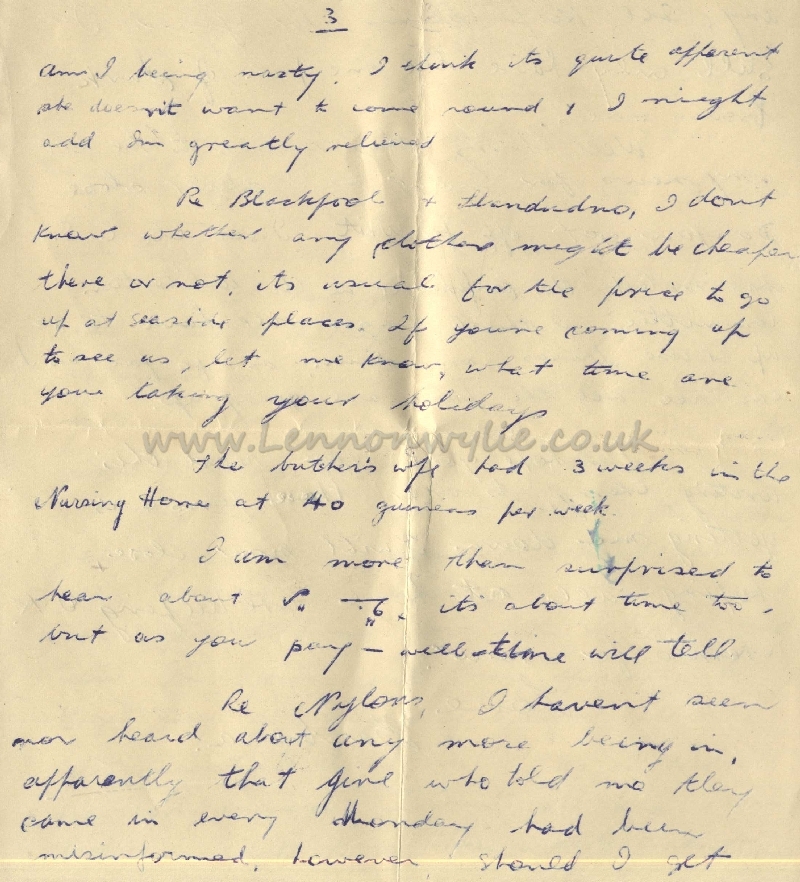 3
am I being nasty. I think its quite apperent
she doesn't want to come round & I might
add Im greatly relieved
Re Blackpool + Llandudno, I dont
know whether any clothes might be cheaper
there or not, its usual for the price to go
up at seaside places. If you're coming up
to see us, let me know, what time are
your taking your holidays
www.Lennonwylie.co.uk
The butcher's wife had 3 weeks in the
Nursing Home at 40 guineas per week.
I am more than surprised to
hear about it's about time too,
but as you say – well time will tell
Re Nylons, I havent seen
nor heard about any more being in,
apparently that girl who told me they
came in every Monday had been
misinformed, however, should I get